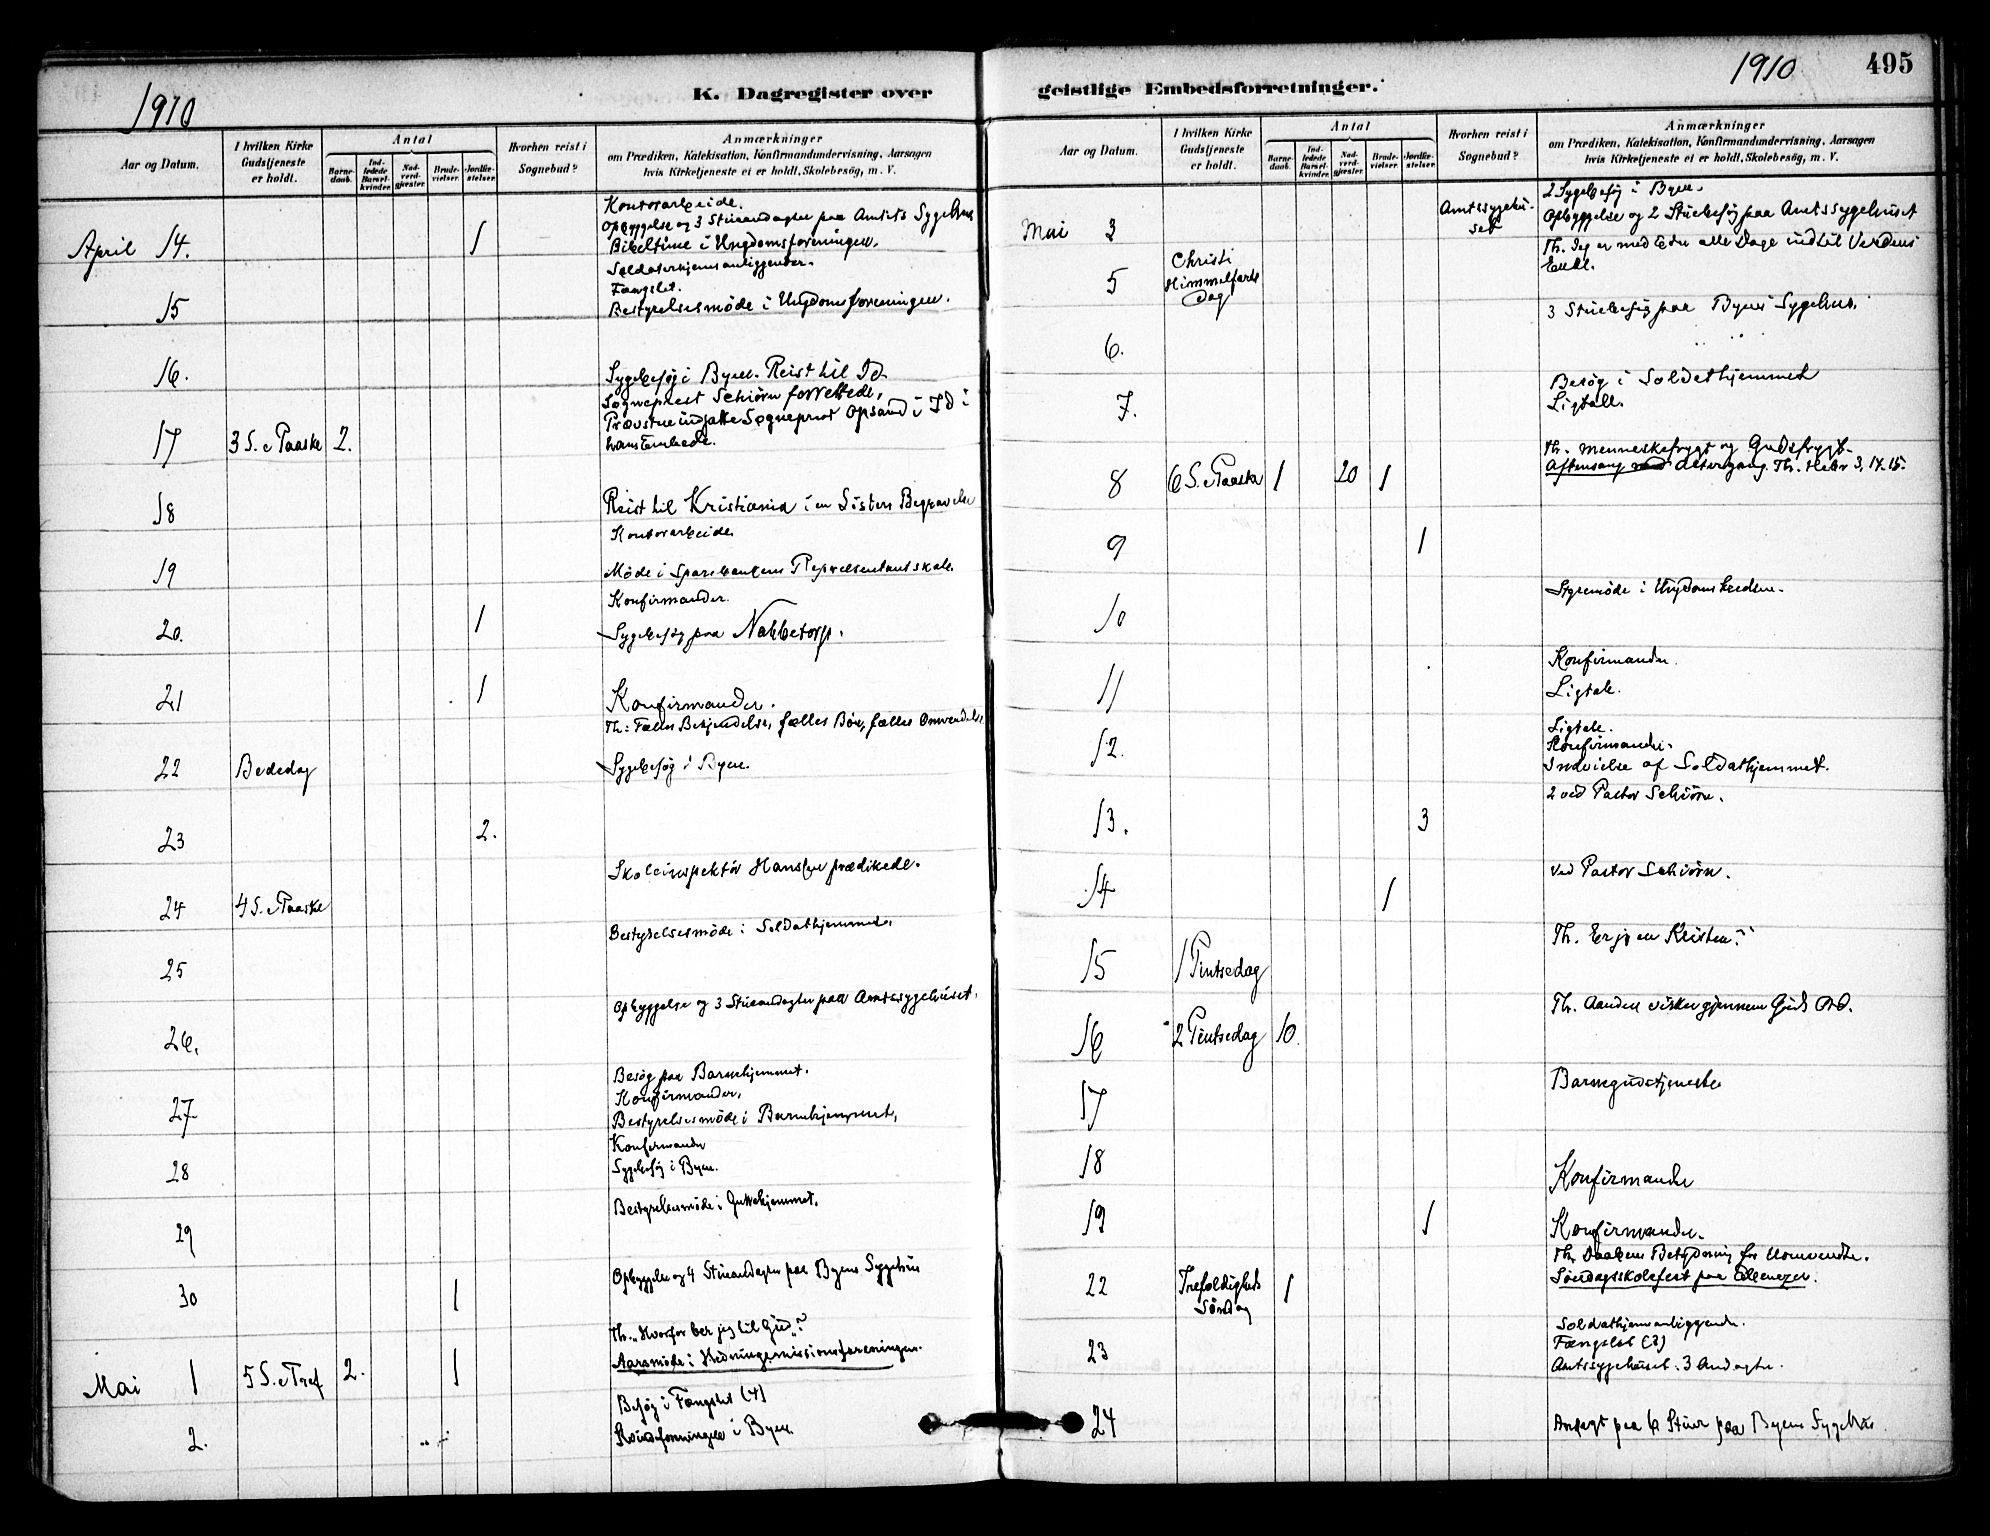 1910
K. Dagregister over
Aar og Datum.
I hvilken Kirke
Gudstjeneste
er holdt.
Antal
Barne-
daab.
Ind-
ledede
Barsel-
kvinder.
Nad-
verd-
gjæster
Brude-
vielser.
Jordfæ-
stelser
Hvorhen reist i
Sognebud?
Anmærkninger
om Prædiken, Katekisation, Konfirmandundervisning, Aarsagen
hvis Kirketjeneste ei er holdt, Skolebesøg, m. V.
Kontorarbeide.
Opbyggelse og 3 Stueandagter paa Amtets Sygehus
April 14. 1 Bibeltime i Ungdomsforeningen.
Soldaterhjemsanliggender.
Fængslet.
15 Bestyrelsesmöde i Ungdomsforeningen.
16. Sygebesøg i Byen. Reist til Id.
Sogneprest Schiörn forrettede,
Provsten indsatte Sogneprest Opsand i Id i
17 3 S. e Paaske 2. hans Embede.
18 Reist til Kristiania i en Sösters Begravelse
Kontorarbeide
19 Möde i Sparebankens Repræsentantskab.
Konfirmander.
20. 1 Sygebesøg paa Nabbetorp.
21 1 Konfirmander.
Th: Fælles Bekjendelse, fælles Bön, fælles Omvendelse
22 Bededag Sygebesøg i Byen.
23 2.
Skoleinspektör Hanssen prædikede.
24 4 S. e Paaske
Bestyrelsesmöde i Soldathjemmet.
25
Opbyggelse og 3 Stueandagter paa Amtssygehuset.
26.
Besøg paa Barnehjemmet.
Konfirmander.
27 Bestyrelsesmöde i Barnehjemmet.
Konfirmander
28 Sygebesøg i Byen.
Bestyrelsesmöde i Guttehjemmet.
29
Opbyggelse og 4 Stueandagter paa Byens Sygehus
30 1
Th. "Hvorfor ber jeg til Gud"?
Aarsmöde i Hedningemissionsforeningen.
Mai 1 5 S. e Tref 2. 1
Besøg i Fængslet (4)
2. i Byen.
geistlige Embedsforretninger.
1910 495
Aar og Datum.
I hvilken Kirke
Gudstjeneste
er holdt.
Antal
Barne-
daab.
Ind-
ledede
Barsel-
kvinder
Nad-
verd-
gjæster
Brude-
vielser
Jordfæ-
stelser
Hvorhen reist i
Sognebud?
Anmærkninger
om Prædiken, Katekisation, Konfirmandundervisning, Aarsagen
hvis Kirketjeneste ei er holdt, Skolebesög, m. V.
2 Sygebesøg i Byen.
Mai 3 Amtssygehu-
set Opbyggelse og 2 Stuebesøg paa Amtssygehuset
Th. Jeg er med Eder alle Dage indtil Verdens
Ende.
5 Christi
Himmelfarts
Dag
3 Stuebesøg paa Byens Sygehus.
6.
Besög i Soldathjemmet
7. Ligtale.
Th. Menneskefrygt og Gudsfrygt.
Aftensang med Altergang. Th. Hebr 3, 14. 15.
8 6 S. e Paaske 1 20 1
9 1
Styremöde i Ungdomskredsen.
10
Konfirmander.
11 Ligtale.
Ligtale.
12. Konfirmander.
Indvielse af Soldathjemmet.
2 ved Pastor Schiörn.
13. 3
ved Pastor Schiörn.
14 1
Th. Er jeg en Kristen?
15 1 Pintsedag
Th. Aanden virker gjennem Guds Ord.
16 2 Pintsedag 10.
Barnegudstjeneste
17
18 Konfirmander
19 1 Konfirmander.
Th. Daabens Betydning for Uomvendte.
Söndagsskolefest paa Ebenezer.
22 Trefoldigheds
Söndag 1
Soldathjemanliggender.
Fængslet (3)
23 Amtssygehuset. 3 Andagter.
24 Andagt paa 6 Stuer paa Byens Sygehus.